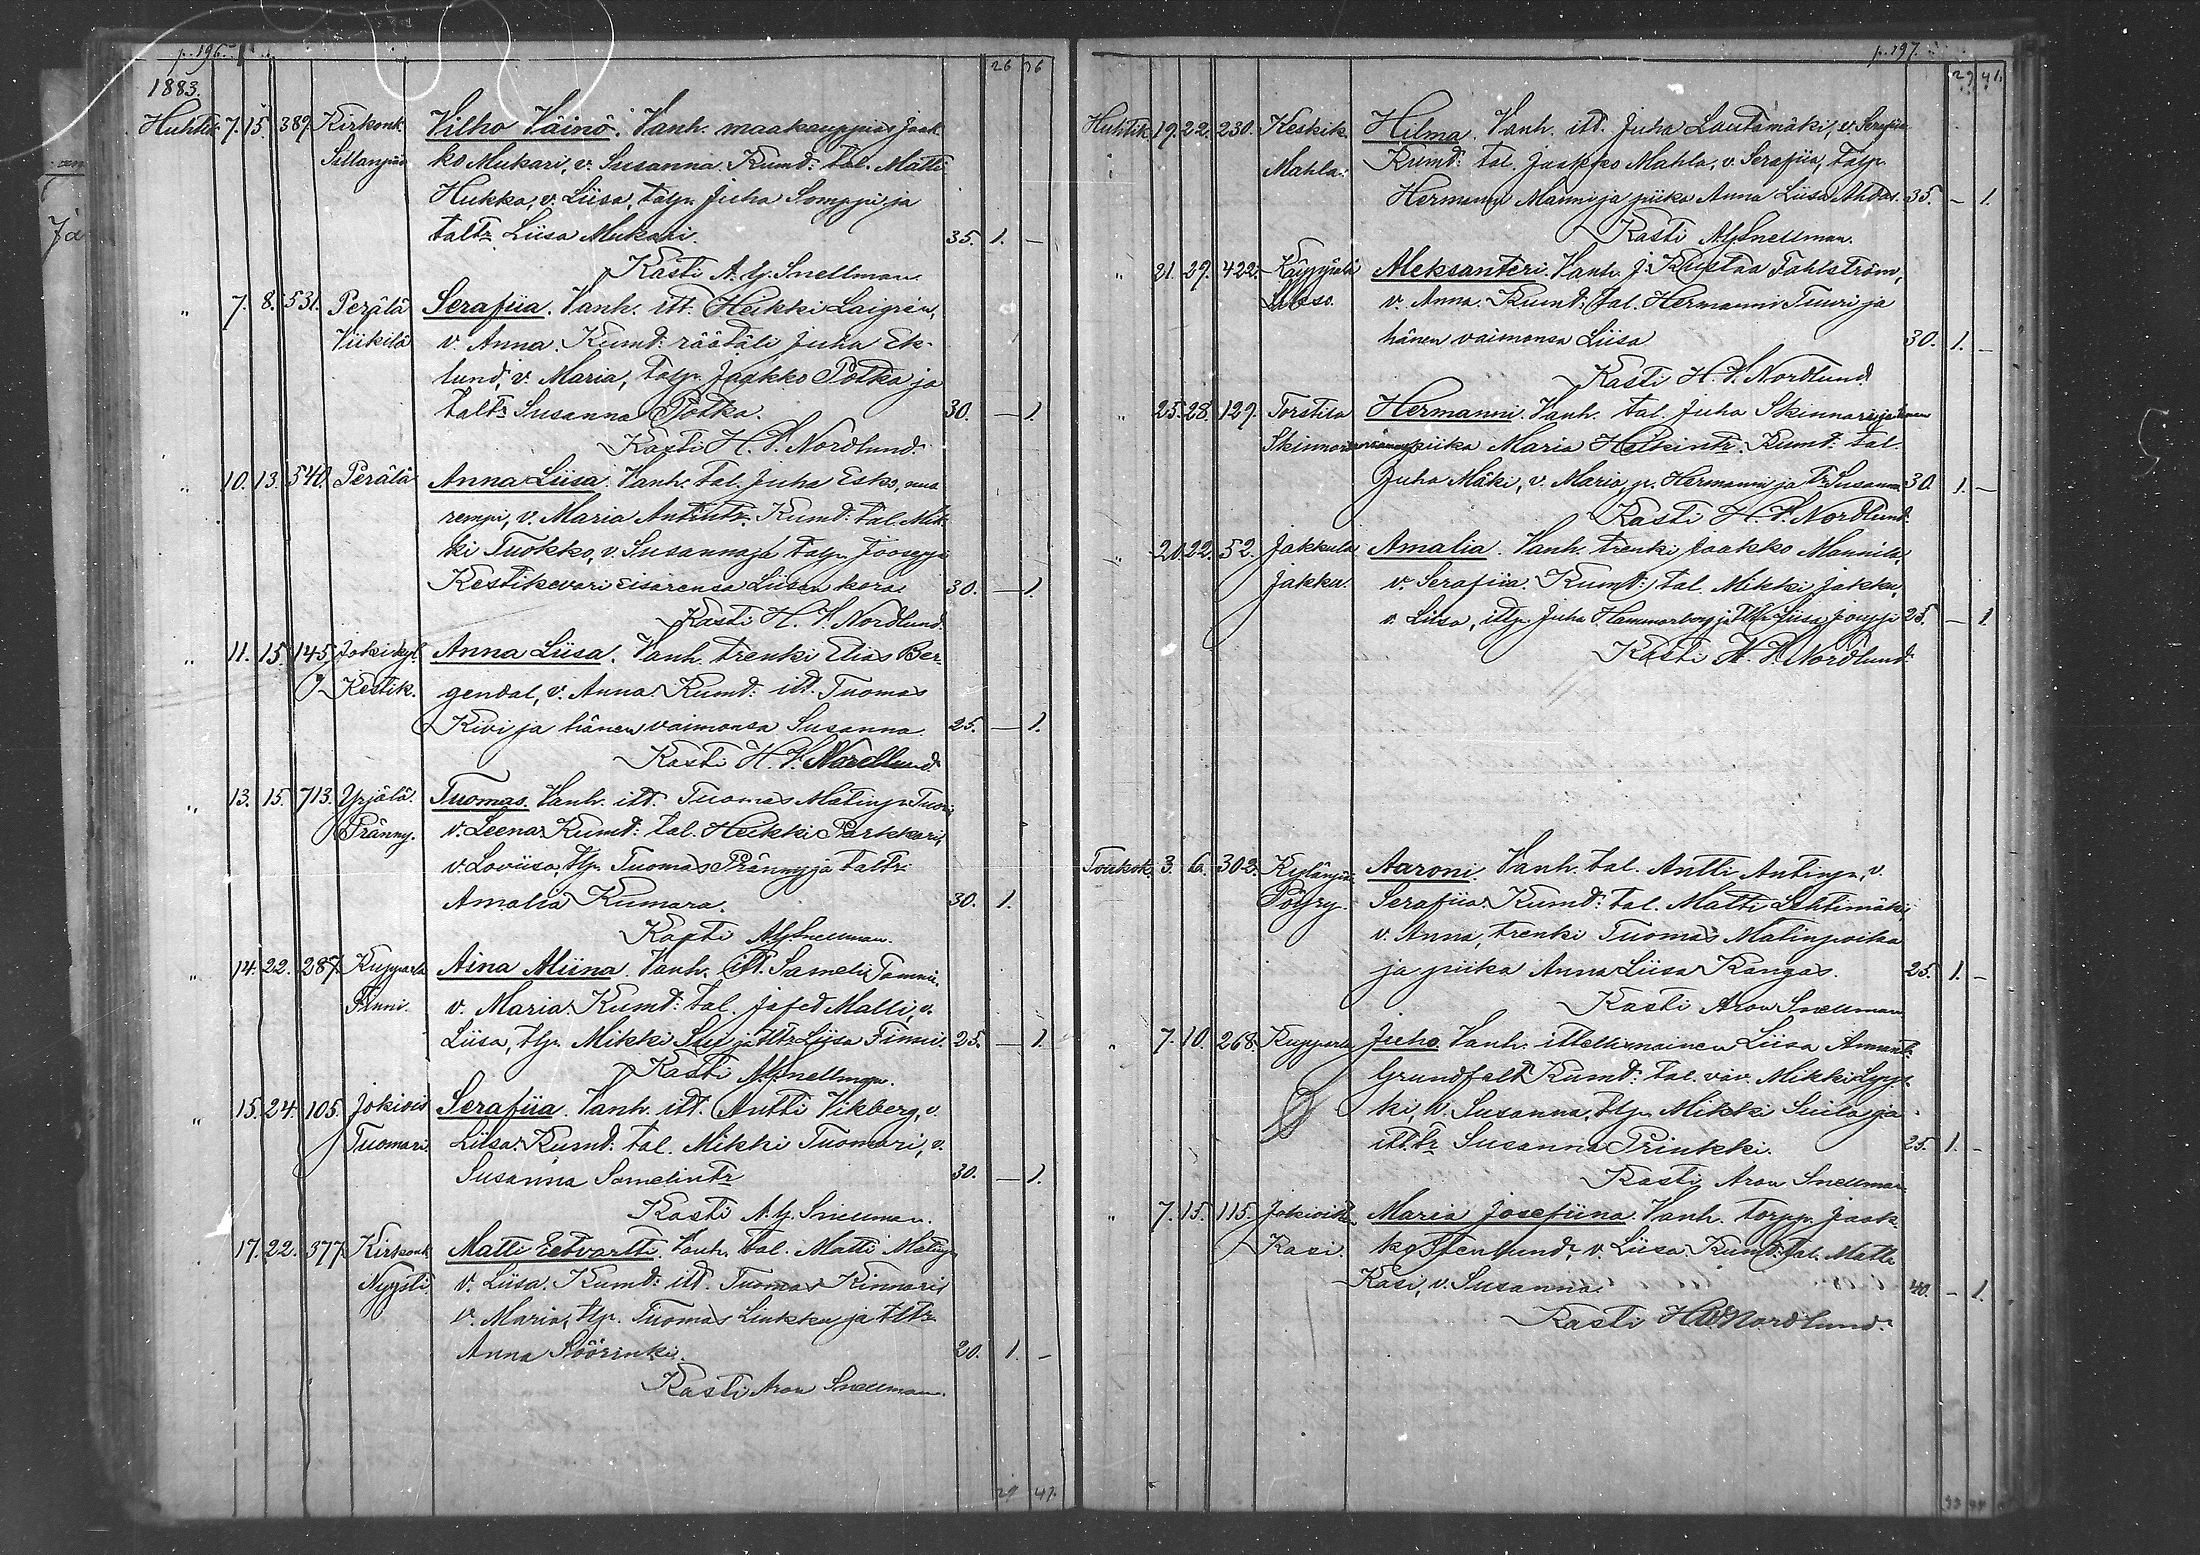 p. 196.
26 36
1883.
Huhtik. 7. 15. 389. Kirkonk. Vilho Väinö. Vanh. maakauppias Jaak-
Sillanpää ko Mukari, v. Susanna. Kumd: tal. Matti
Hukka, v. Liisa, talp. Juha Somppi ja
taltr Liisa Mukari. 35. 1. —
Kasti A. G. Snellman.
" 7. 8. 531. Perälä Serafiia. Vanh. itt. Heikki Laigrén,
Viikilä v. Anna. Kumd: räätäli Juha Ek-
lund, v. Maria, talp. Jaakko Potka ja
taltr Susanna Potka. 30. — 1.
Kasti H. V. Nordlund.
" 10. 13. 540. Perälä Anna Liisa. Vanh. tal. Juha Esko, nuo
rempi, v. Maria Antintr. Kumd: tal. Mik-
ki Tuokko, v. Susanna ja talp. Jooseppi
Kestikevari sisarensa Liisan kera. 30. — 1.
Kasti H. V. Nordlund.
" 11. 15. 145. Jokikyl. Anna Liisa. Vanh. trenki Elias Ber-
Kestik. gendal, v. Anna. Kumd: itt. Tuomas
Kivi ja hänen vaimonsa Susanna. 25. — 1.
Kasti H. V. Nordlund.
" 13. 15. 713. Yrjälä. Tuomas. Vanh. itt. Tuomas Matinp. Tuori
Pränny. v. Leena. Kumd: tal. Heikki Parkkari,
v. Loviisa, tlp. Tuomas Pränny ja taltr
Amalia Kumara. 30. 1.
Kasti A. G. Snellman.
" 14. 22. 287. Kupparla Aina Miina. Vanh. itt. Sameli Tammi,
Finni. v. Maria. Kumd: tal. Jafed Malli, v.
Liisa, tlp. Mikki ja tltr Liisa Finni. 25. — 1.
Kasti A. G. Snellman.
" 15. 24. 105. Jokivis Serafiia. Vanh. itt. Antti Vikberg, v.
Tuomari. Liisa. Kumd: tal. Mikki Tuomari, v.
Susanna Samelintr 30. — 1.
Kasti A. G. Snellman.
17. 22. 377. Kirkonk. Matti Eetvartti. Vanh. tal. Matti Matinp
Nyysti v. Liisa. Kumd: itt. Tuomas Kinnari,
v. Maria, tlp. Tuomas Liukku ja tltr
Anna Röörinki. 20. 1. —
Kasti Aron Snellman.
29 41.
p. 197.
29 41.
Huhtik. 19. 22. 230. Keskik. Hilma. Vanh. itt. Juha Lautamäki, v. Serafiia
Mahla. Kumd: tal. Jaakko Mahla, v. Serafiia, talp.
Hermanni Manni ja piika Anna Liisa Ahdas. 35. — 1.
Kasti A. G. Snellman.
" 21. 29. 422. Kauppila Aleksanteri. Vanh. J. Kustaa Fahlström,
v. Anna. Kumd: tal. Hermanni Tuuri ja
hänen vaimonsa Liisa 30. 1. —
Kasti H. V. Nordlund.
" 25. 28. 129. Torstila Hermanni. Vanh. tal. Juho Skinnari ja hänen
Skinnari piika Maria Heikintr. Kumd: tal.
Juho Mäki, v. Maria, p. Hermanni ja tr Susanna 30. 1. —
Kasti H. V. Nordlund.
" 20. 22. 52. Jakkula Amalia. Vanh. trenki Jaakko Mannila,
Jakku. v. Serafiia. Kumd: tal. Mikki Jakku,
v. Liisa, itlp. Juha Hammarberg ja tltr Liisa 25. — 1.
Kasti H. V. Nordlund.
Toukok. 3. 6. 302. Kylänpää Aaroni. Vanh. tal. Antti Antinp., v.
Pöyry. Serafiia. Kumd: tal. Matti Lehtimäki,
v. Anna, trenki Tuomas Matinpoika
ja piika Anna Liisa Kangas. 25. 1. —
Kasti Aron Snellman
" 7. 10. 268. Kupparla Juho. Vanh. ittellinainen Liisa Annantr
Grundfelt. Kumd: tal. väv. Mikki Lyys-
ki, v. Susanna, tlp. Mikki Suila ja
itt.tr Susanna Prinkki. 25. 1. —
Kasti Aron Snellman
" 7. 15. 115. Jokivis Maria Josefiina. Vanh. torpp. Jaak-
Kasi. ko Stenlund, v. Liisa. Kumd: tal. Matti
Kasi, v. Susanna. 40. — 1.
Kasti H. V. Nordlund.